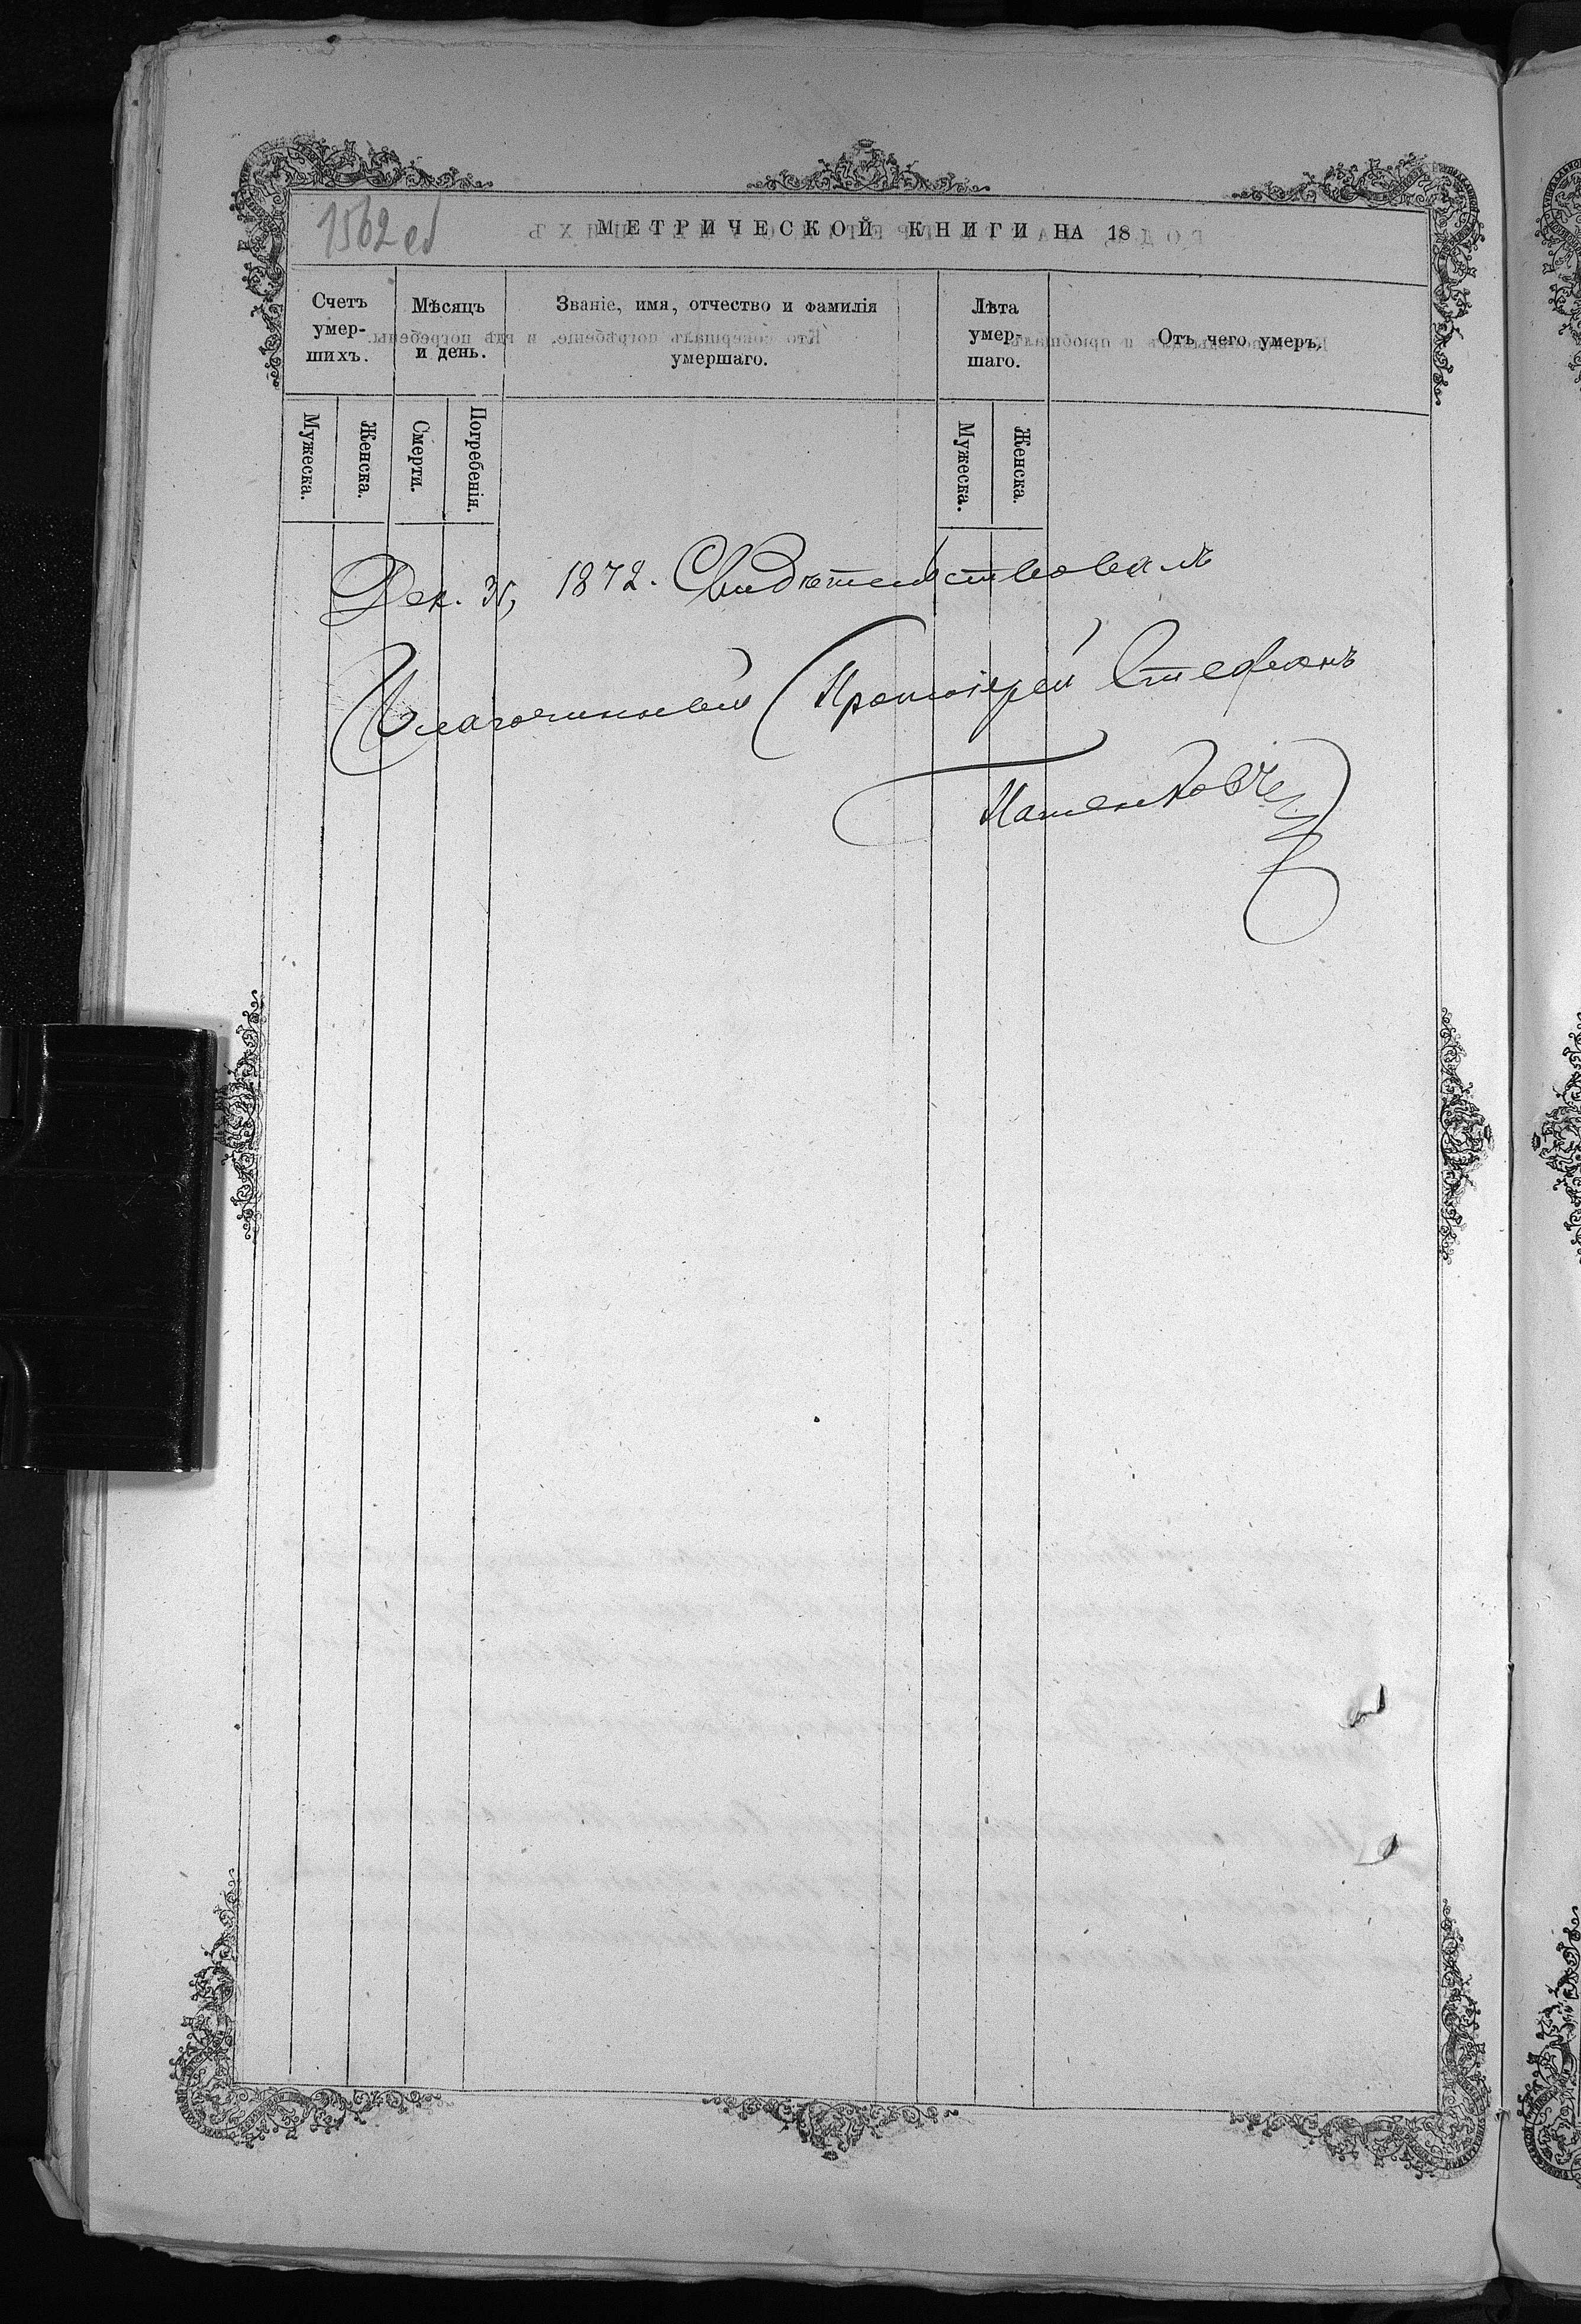 1562 об
МЕТРИЧЕСКОЙ КНИГИ НА 18
Счетъ умер-шихъ.
Мѣсяцъ и день.
Званіе, имя, отчество и фамилія умершаго.
Лѣта умер-шаго.
Отъ чего умеръ.
Мужеска.
Женска.
Смерти.
Погребенія.
Мужеска.
Женска.
Дек. 31, 1872. Свидѣтельствовалъ
Благочинный Протоіерей Стефанъ